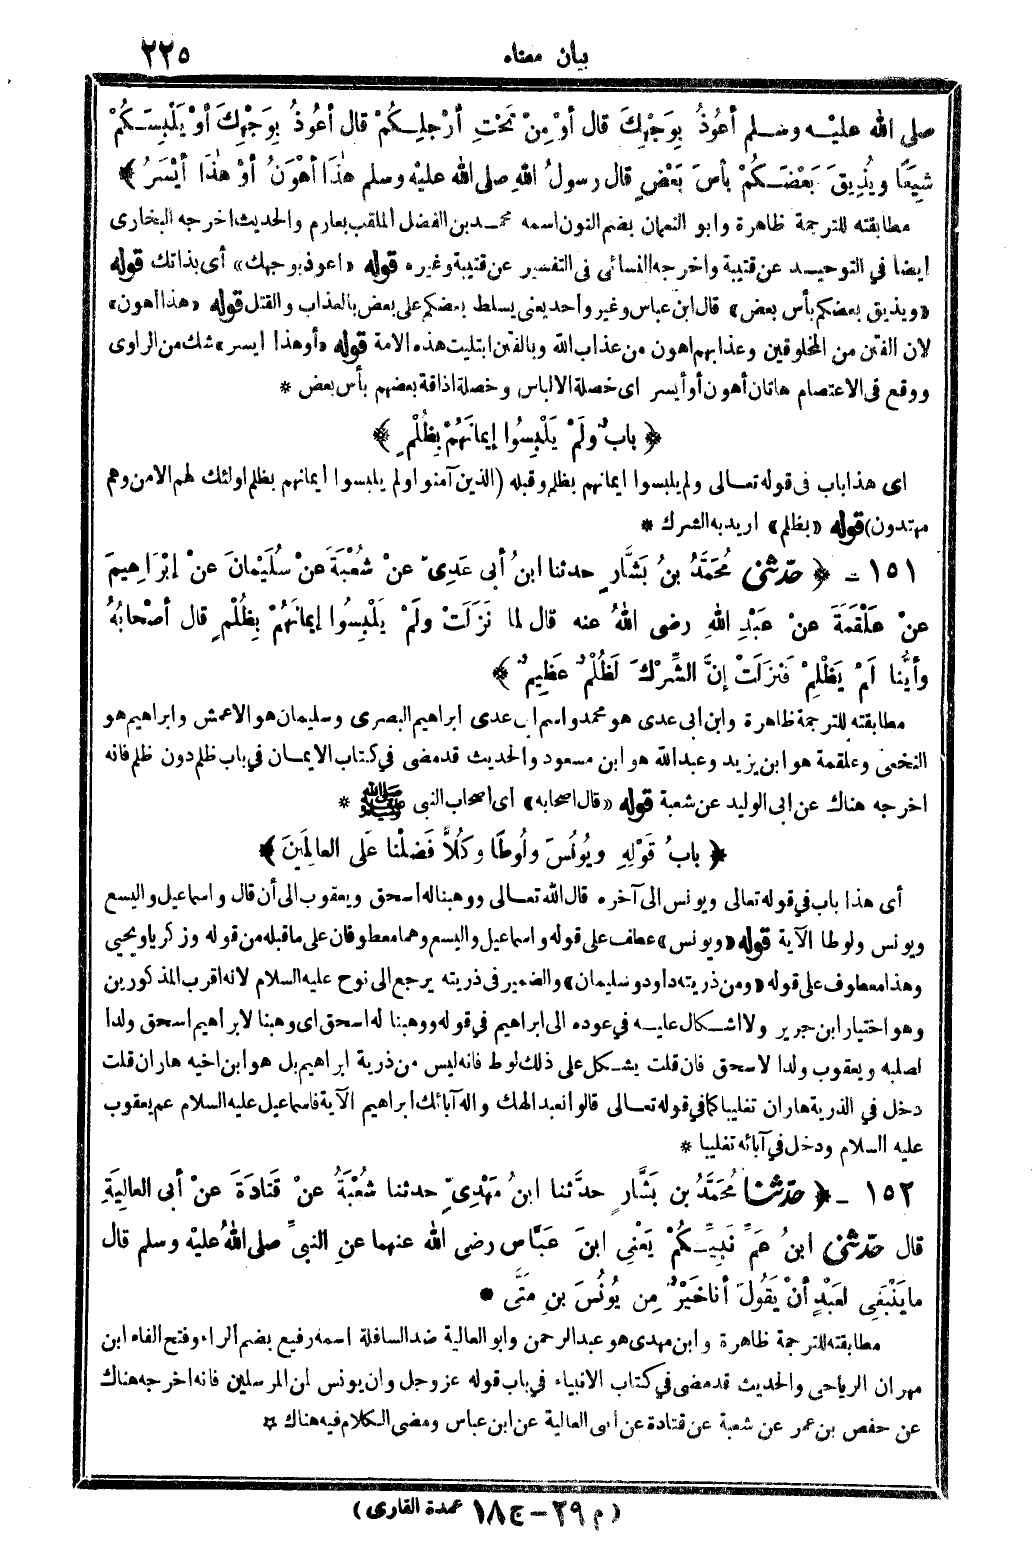 بيان معناه ٢٢٥
صلى الله عليْه وسَلم أعُوذُ بِوَجْهِكَ قال أوْ مِنْ تَحْتِ أرْجلِكُمْ قال أعُوذُ بِوَجْهِكَ أوْ يَلْبِسَكُمْ
شِيَعًا ويُذِيقَ بَعْضَكُمْ بأسَ بَعْضٍ قال رسولُ اللهِ صلى الله عليْه وسلم هٰذَا أهْوَنُ أوْ هٰذَا أيْسَرُ ﴾
مطابقته للترجمة ظاهرة وابو النعمان بضم النون اسمه محمد بن الفضل الملقب بعارم والحديث اخرجه البخارى
ايضا في التوحيد عن قتيبة واخرجه النسائى في التفسير عن قتيبة وغيره قوله «اعوذ بوجهك» أى بذاتك قوله
«ويذيق بعضكم بأس بعض» قال ابن عباس وغير واحد يعنى يسلط بعضكم على بعض بالعذاب والقتل قوله «هذا أهون»
لان الفتن من المخلوقين وعذابهم اهون من عذاب الله وبالفتن ابتليت هذه الامة قوله «أوهذا ايسر» شك من الراوى
ووقع فى الاعتصام هاتان أهون أو أيسر اى خصلة الالباس وخصلة اذاقة بعضهم بأس بعض *
﴿ بابٌ ولَمْ يَلْبِسُوا إيمانَهُمْ بِظُلْمٍ ﴾
اى هذا باب فى قوله تعالى ولم يلبسوا ايمانهم بظلم وقبله (الذين آمنوا ولم يلبسوا ايمانهم بظلم اولئك لهم الامن وهم
مهتدون) قوله «بظلم» اريد به الشرك *
١٥١ - ﴿ حدّثنى مُحَمَّدُ بنُ بَشَّارٍ حدثنا ابنُ أبى عَدِىّ عنْ شُعْبَةَ عنْ سُلَيْمانَ عنْ إبْرَاهِيمَ
عنْ عَلْقَمَةَ عنْ عَبْدِ اللهِ رضى اللهُ عنه قال لما نَزَلَتْ ولَمْ يَلْبِسُوا إيمانَهُمْ بِظُلْمٍ قال أصْحابُهُ
وأيُّنا لَمْ يَظْلِمْ فَنزلَتْ إنَّ الشِّرْكَ لَظُلْمٌ عَظِيمٌ ﴾
مطابقته للترجمة ظاهرة وابن ابى عدى هو محمد واسم ابى عدى ابراهيم البصرى وسليمان هو الاعمش وابراهيم هو
النخعى وعلقمة هو ابن يزيد وعبدالله هو ابن مسعود والحديث قد مضى في كتاب الايمان في باب ظلم دون ظلم فانه
اخرجه هناك عن ابى الوليد عن شعبة قوله «قال اصحابه» اى اصحاب النبى ﷺ *
﴿ بابُ قَوْلِهِ ويُونُسَ ولُوطًا وكُلاًّ فَضَلْنا عَلَى العالَمِينَ ﴾
أى هذا باب في قوله تعالى ويونس الى آخره قال الله تعالى ووهبنا له اسحق ويعقوب الى أن قال واسماعيل واليسع
ويونس ولوطا الآية قوله «ويونس» عطف على قوله واسماعيل واليسع وهما معطوفان على ما قبله من قوله وزكريا ويحيي
وهذا معطوف على قوله «ومن ذريته داود وسليمان» والضمير فى ذريته يرجع الى نوح عليه السلام لانه اقرب المذكورين
وهو اختيار ابن جرير ولا اشكال عليه في عوده الى ابراهيم في قوله ووهبنا له اسحق اى وهبنا لابراهيم اسحق ولدا
لصلبه ويعقوب ولدا لاسحق فان قلت يشكل على ذلك لوط فانه ليس من ذرية ابراهيم بل هو ابن اخيه هاران قلت
دخل في الذرية هاران تغليبا كما في قوله تعالى قالوا نعبد الهك واله آبائك ابراهيم الآية فاسماعيل عليه السلام عم يعقوب
عليه السلام ودخل في آبائه تغليبا *
١٥٢ - ﴿ حدّثنا مُحَمَّدُ بن بَشَّارٍ حدَّثنا ابنُ مَهْدِىّ حدثنا شُعْبَةُ عنْ قَتادَةَ عنْ أبى العالِيَةِ
قال حدّثنى ابنُ عَمِّ نَبِيِّكُمْ يَعْنِى ابنَ عَبَّاس رضى الله عنهما عنِ النبىِّ صلى اللهُ عليْه وسلم قال
ما يَنْبَغِى لعَبْدٍ أنْ يَقُولَ أنا خَيْرٌ مِن يُونُسَ بنِ مَتَّى •
مطابقته للترجمة ظاهرة وابن مهدى هو عبد الرحمن وابو العالية ضد السافلة اسمه رفيع بضم الراء وفتح الفاء ابن
مهران الرياحى والحديث قد مضى في كتاب الانبياء في باب قوله عز وجل وان يونس لمن المرسلين فانه اخرجه هناك
عن حفص بن عمر عن شعبة عن قتادة عن أبى العالية عن ابن عباس ومضى الكلام فيه هناك *
(م ٢٩ - ج ١٨ عمدة القارى)